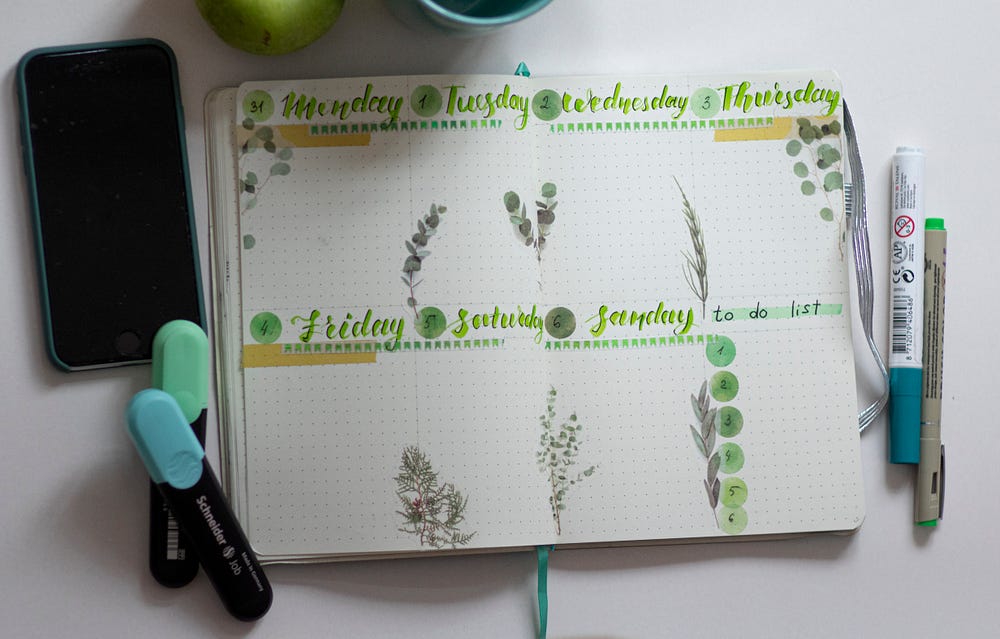 31 Monday 1 Tuesday 2 Wednesday 3 Thursday
4 Friday 5 Saturday 6 Sunday to do list
1
2
3
4
5
6
Schneider Job
Made in Germany
CE
AP